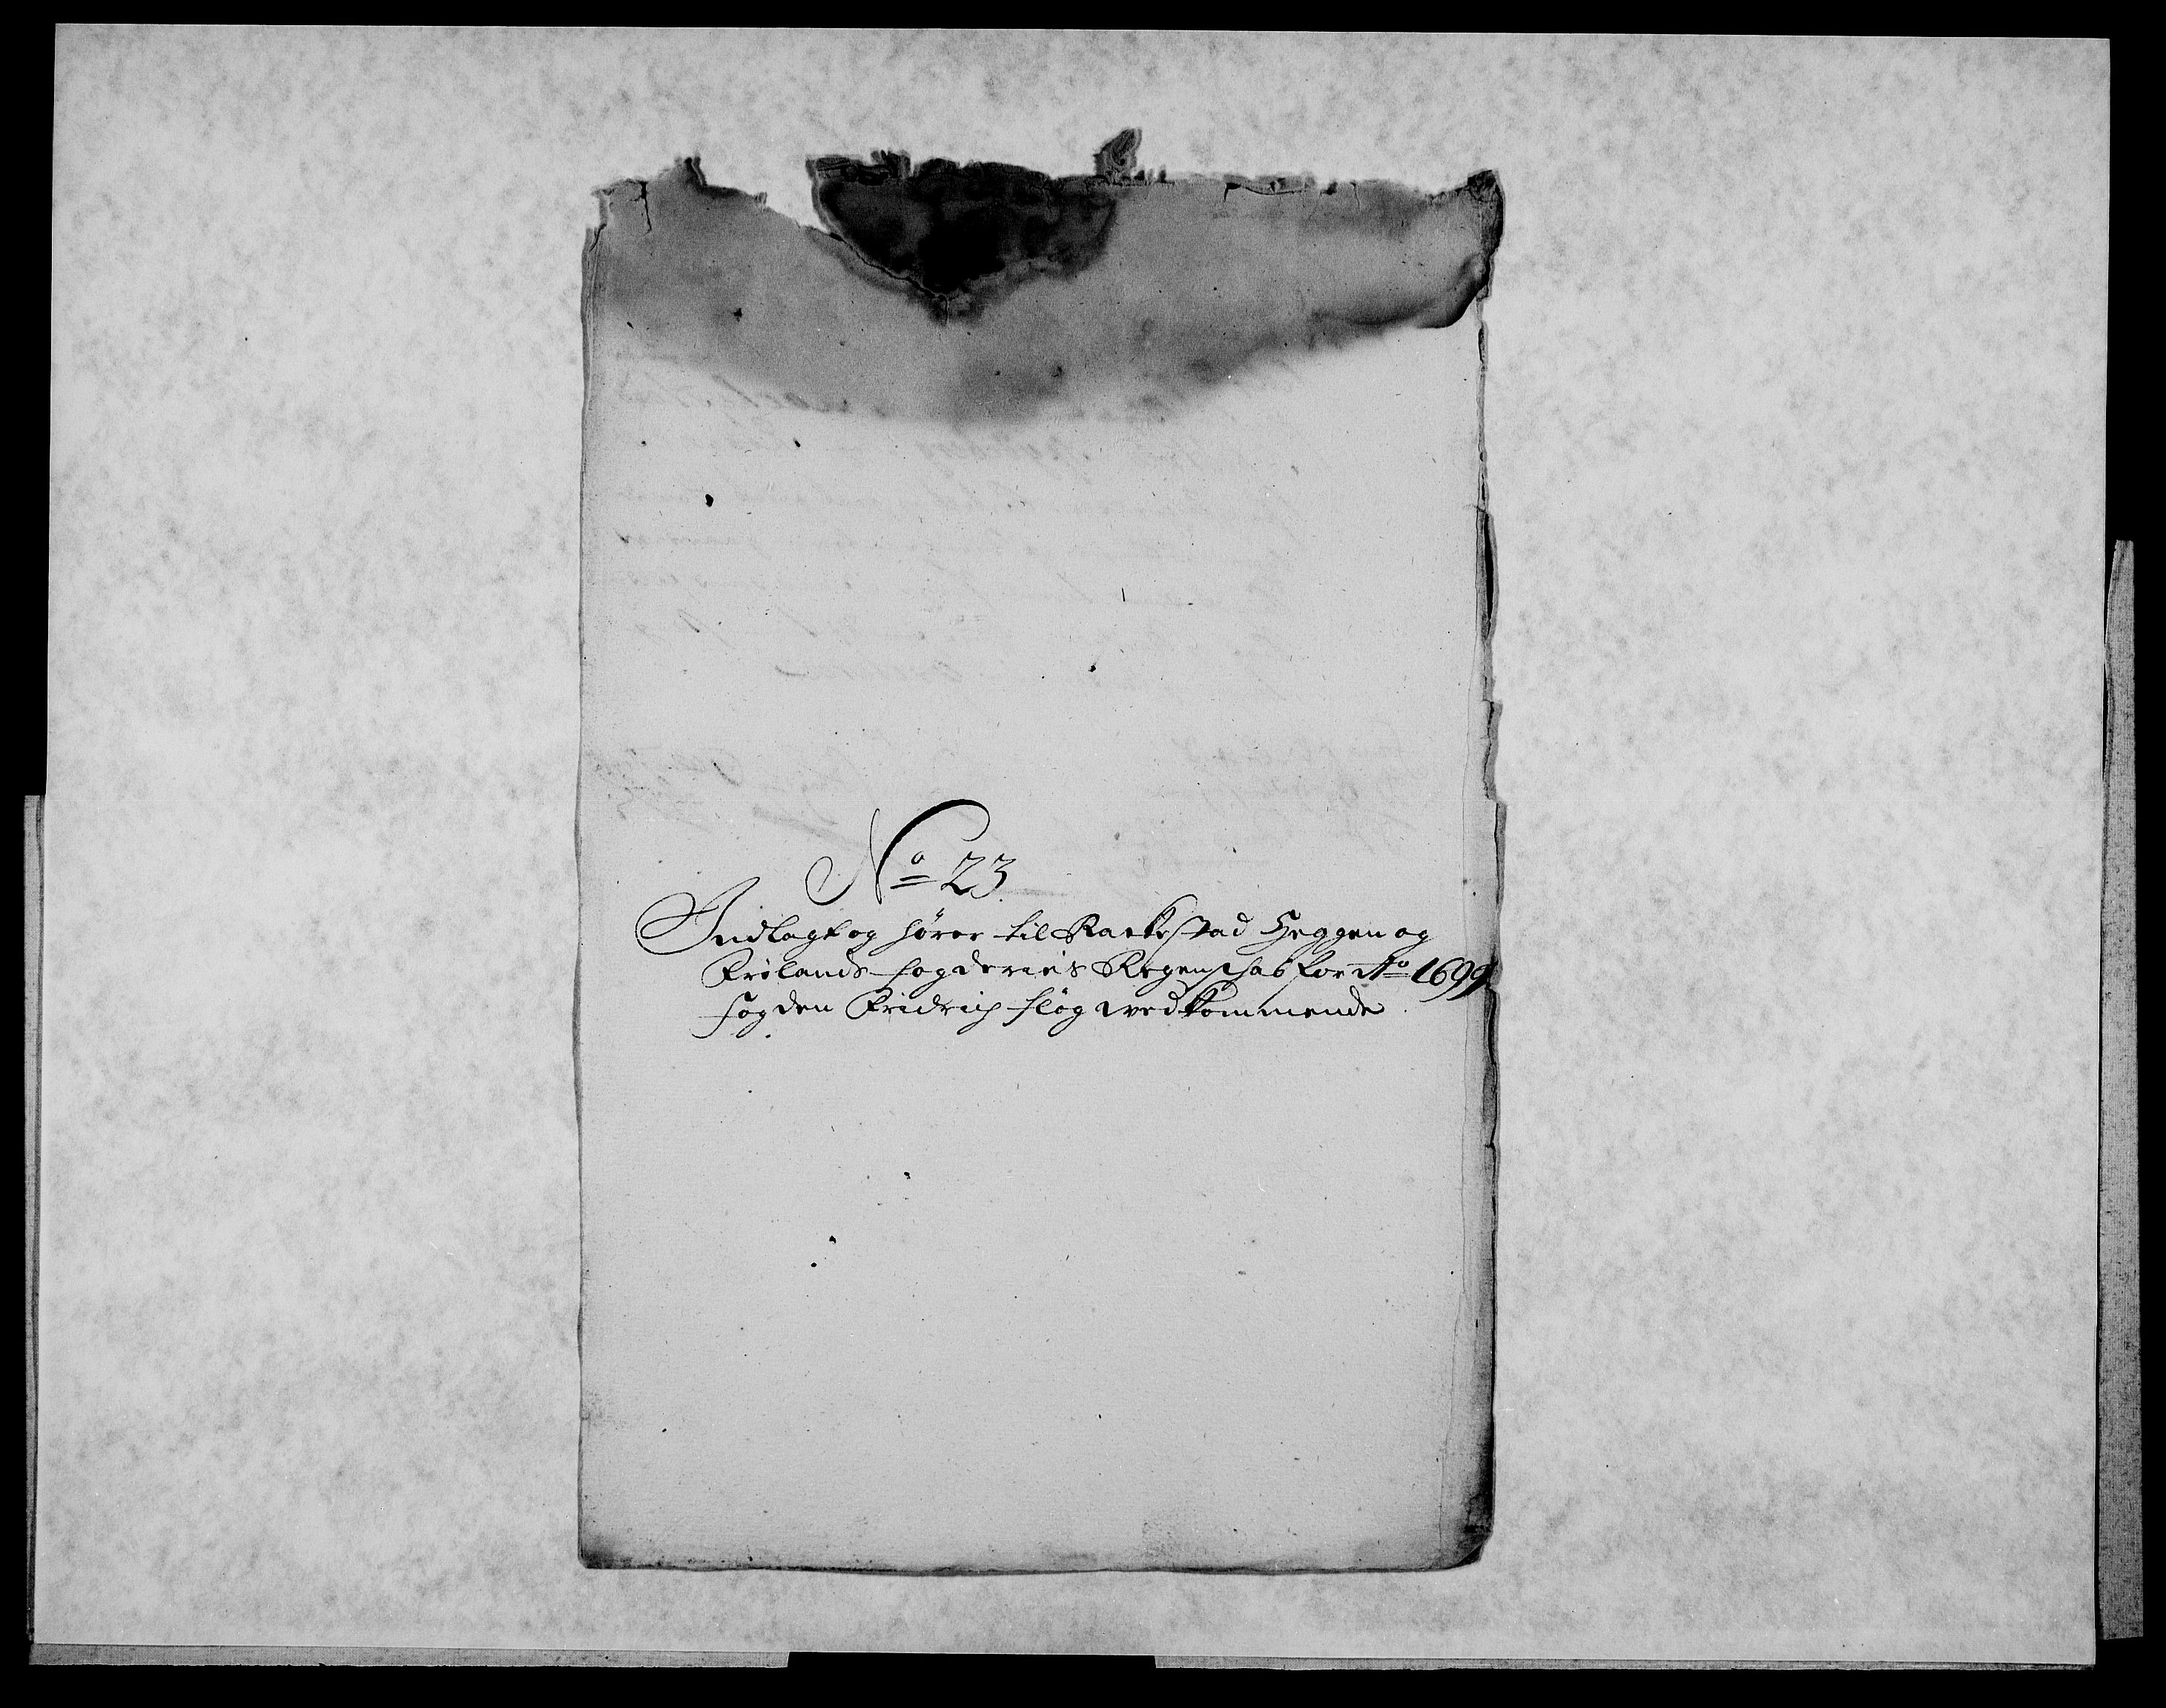 No 23
Indlagt og hører til Rackestad Heggen og
Frølands fogderies Regenschab for Ao 1699
fogden Fridrich fløg vedkommende